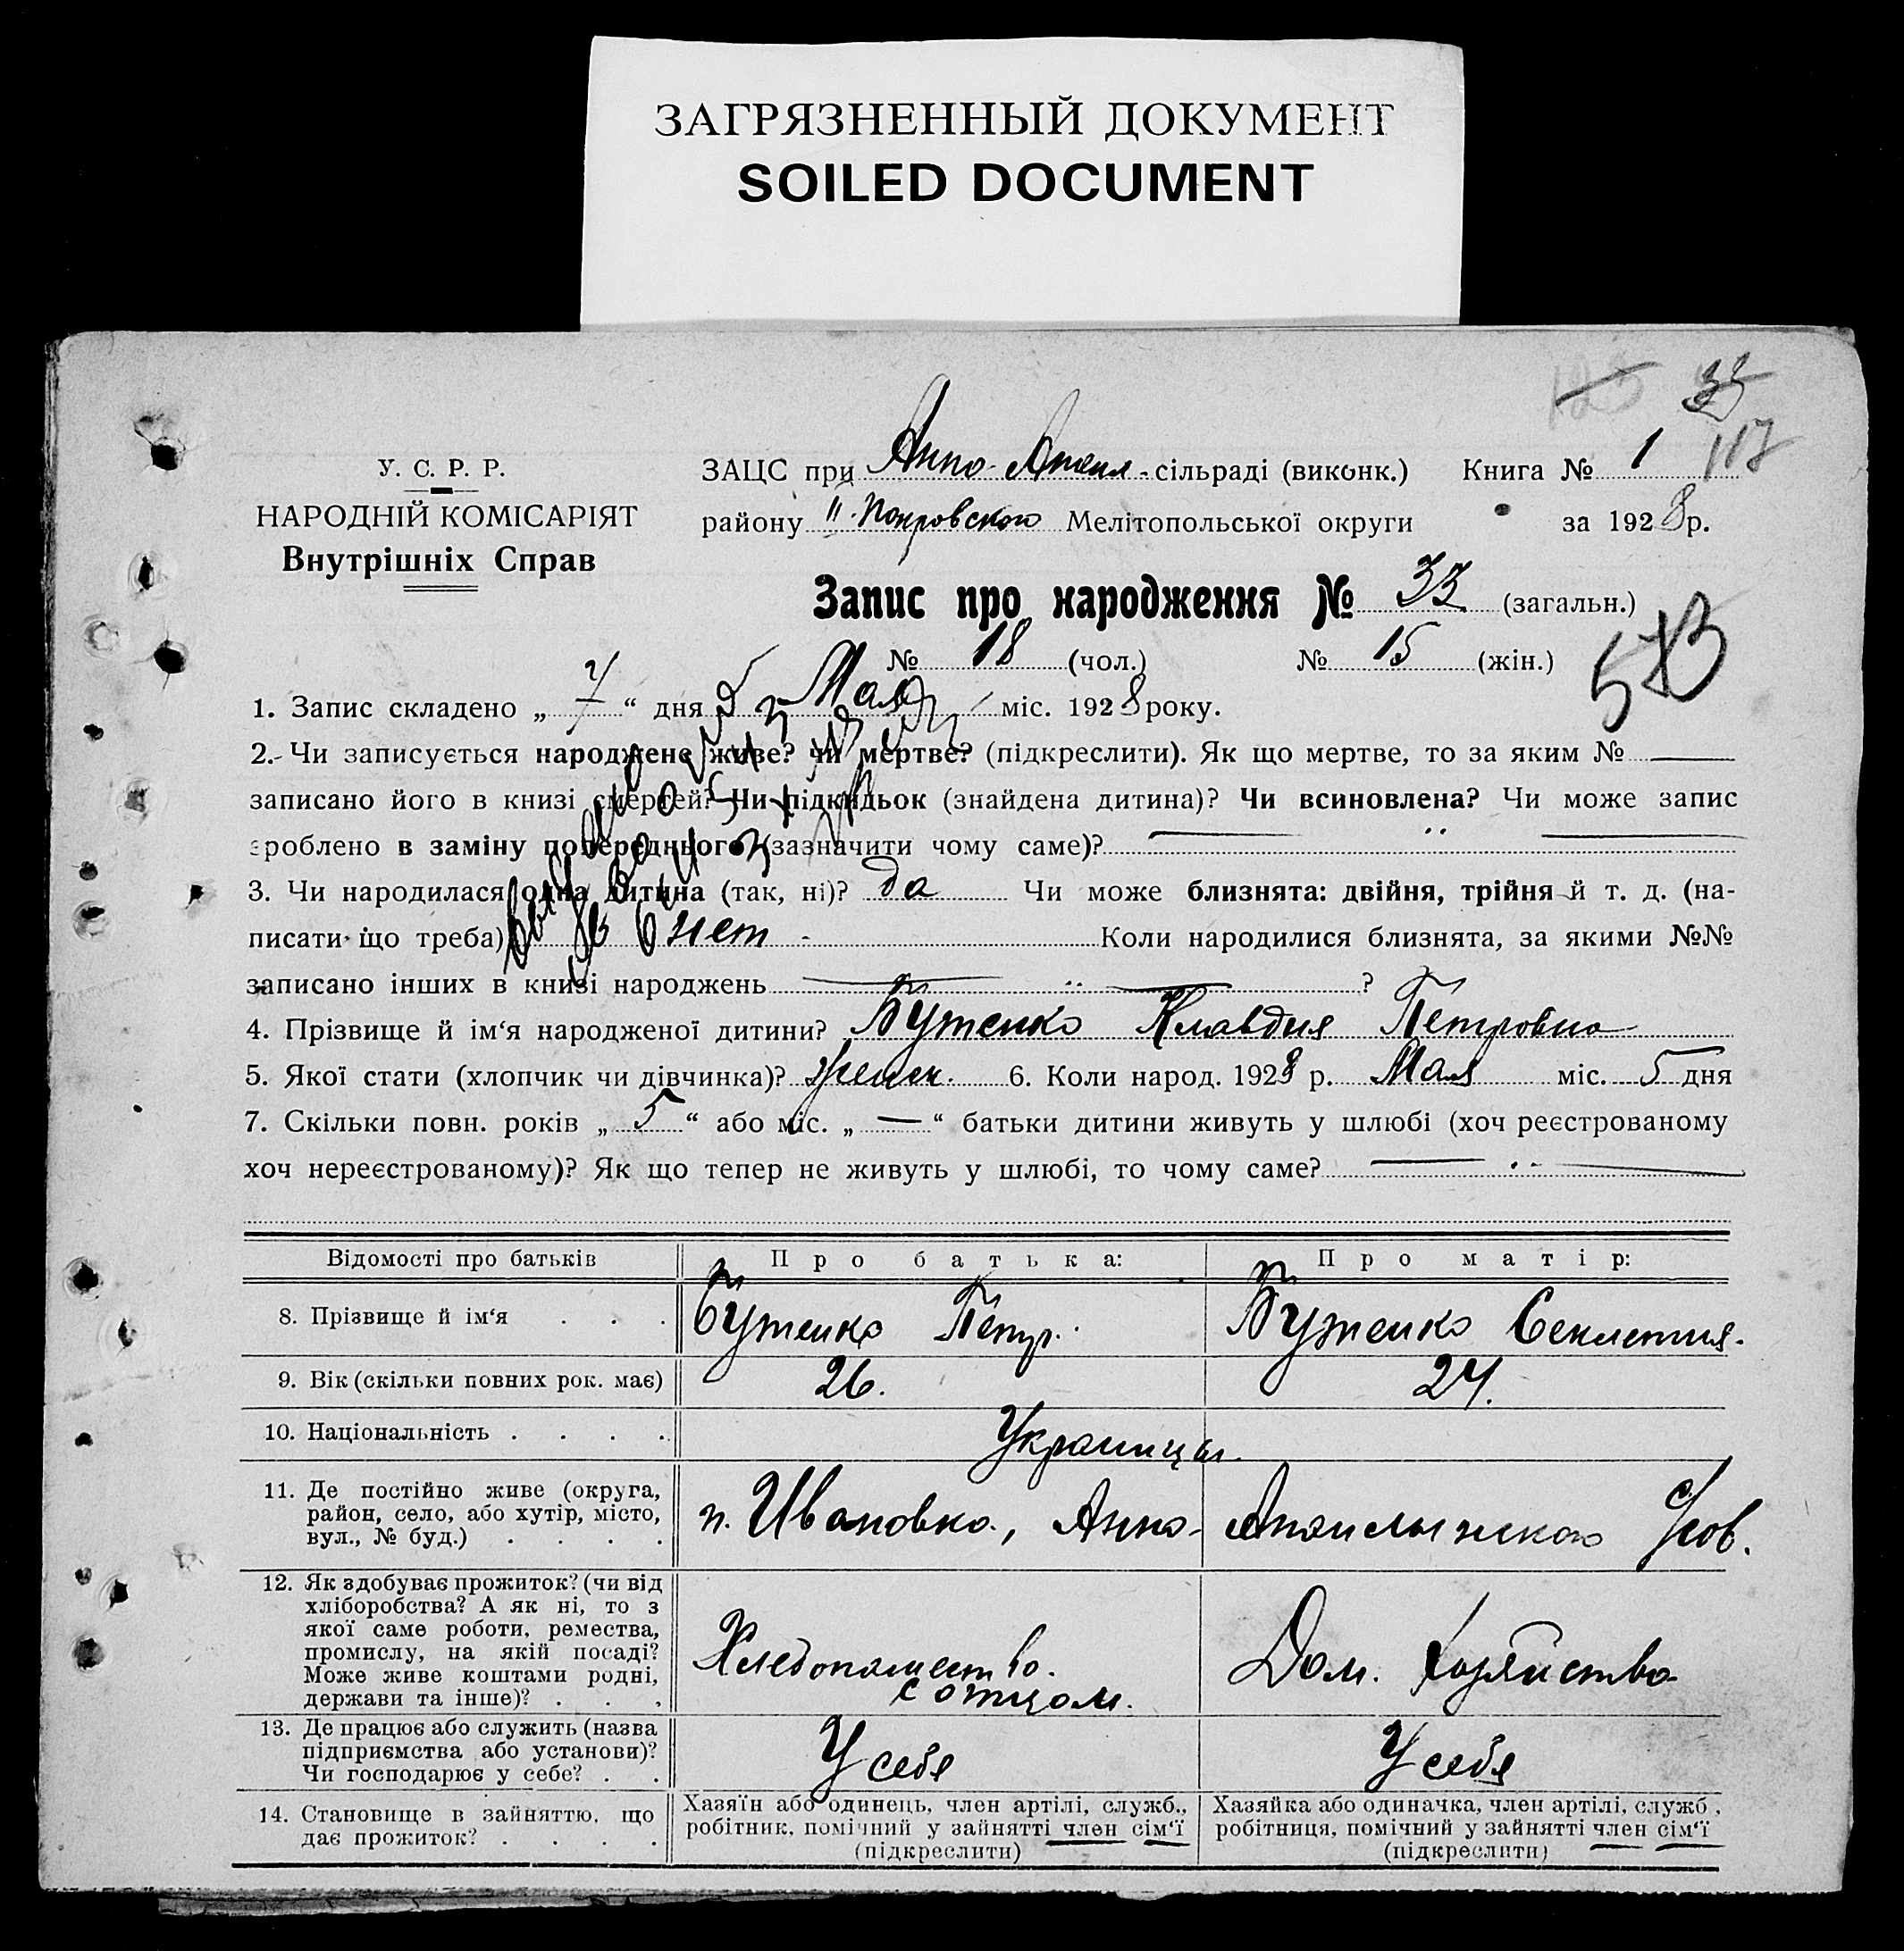 ЗАГРЯЗНЕННЫЙ ДОКУМЕНТ
SOILED DOCUMENT
125 33
117
У. С. Р. Р.
НАРОДНІЙ КОМІСАРІЯТ
Внутрішніх Справ
ЗАЦС при Анно- сільраді (виконк.) Книга № 1
району II-Покровского Мелітопольської округи за 1928 р.
Запис про народження № 33 (загальн.)
№ 18 (чол.) № 15 (жін.)
573
1. Запис складено „ 7 “ дня Мая міс. 1928 року.
2. Чи записується народжене живе? чи мертве? (підкреслити). Як що мертве, то за яким №
записано його в книзі смертей? Чи підкидьок (знайдена дитина)? Чи всиновлена? Чи може запис
зроблено в заміну попереднього (зазначити чому саме)?
3. Чи народилася одна дитина (так, ні)? да Чи може близнята: двійня, трійня й т. д. (на-
писати що треба) нет Коли народилися близнята, за якими №№
записано інших в книзі народжень ?
4. Прізвище й ім‘я народженої дитини? Бутенко Клавдия Петровна
5. Якої стати (хлопчик чи дівчинка)? женск. 6. Коли народ. 1928 р. Мая міс. 5 дня
7. Скільки повн. років „ 5 “ або міс. „ — “ батьки дитини живуть у шлюбі (хоч реєстрованому
хоч нереєстрованому)? Як що тепер не живуть у шлюбі, то чому саме?
Відомості про батьків Про батька: Про матір:
8. Прізвище й ім‘я Бутенко Петр. Бутенко Секлетия.
9. Вік (скільки повних рок. має) 26. 24.
10. Національність Украинцы.
11. Де постійно живе (округа,
район, село, або хутір, місто,
вул., № буд.)
п. Ивановка, Анно- с/сов.
12. Як здобуває прожиток? (чи від
хліборобства? А як ні, то з
якої саме роботи, ремества,
промислу, на якій посаді?
Може живе коштами родні,
держави та інше)?
Хлебопашество.
с отцом.
Дом. хозяйство
13. Де працює або служить (назва
підприємства або установи)?
Чи господарює у себе?
У себя У себя
14. Становище в зайняттю, що
дає прожиток?
Хазяїн або одинець, член артілі, служб.,
робітник, помічний у зайнятті член сім‘ї
(підкреслити)
Хазяйка або одиначка, член артілі, служб.,
робітниця, помічний у зайнятті член сім‘ї
(підкреслити)